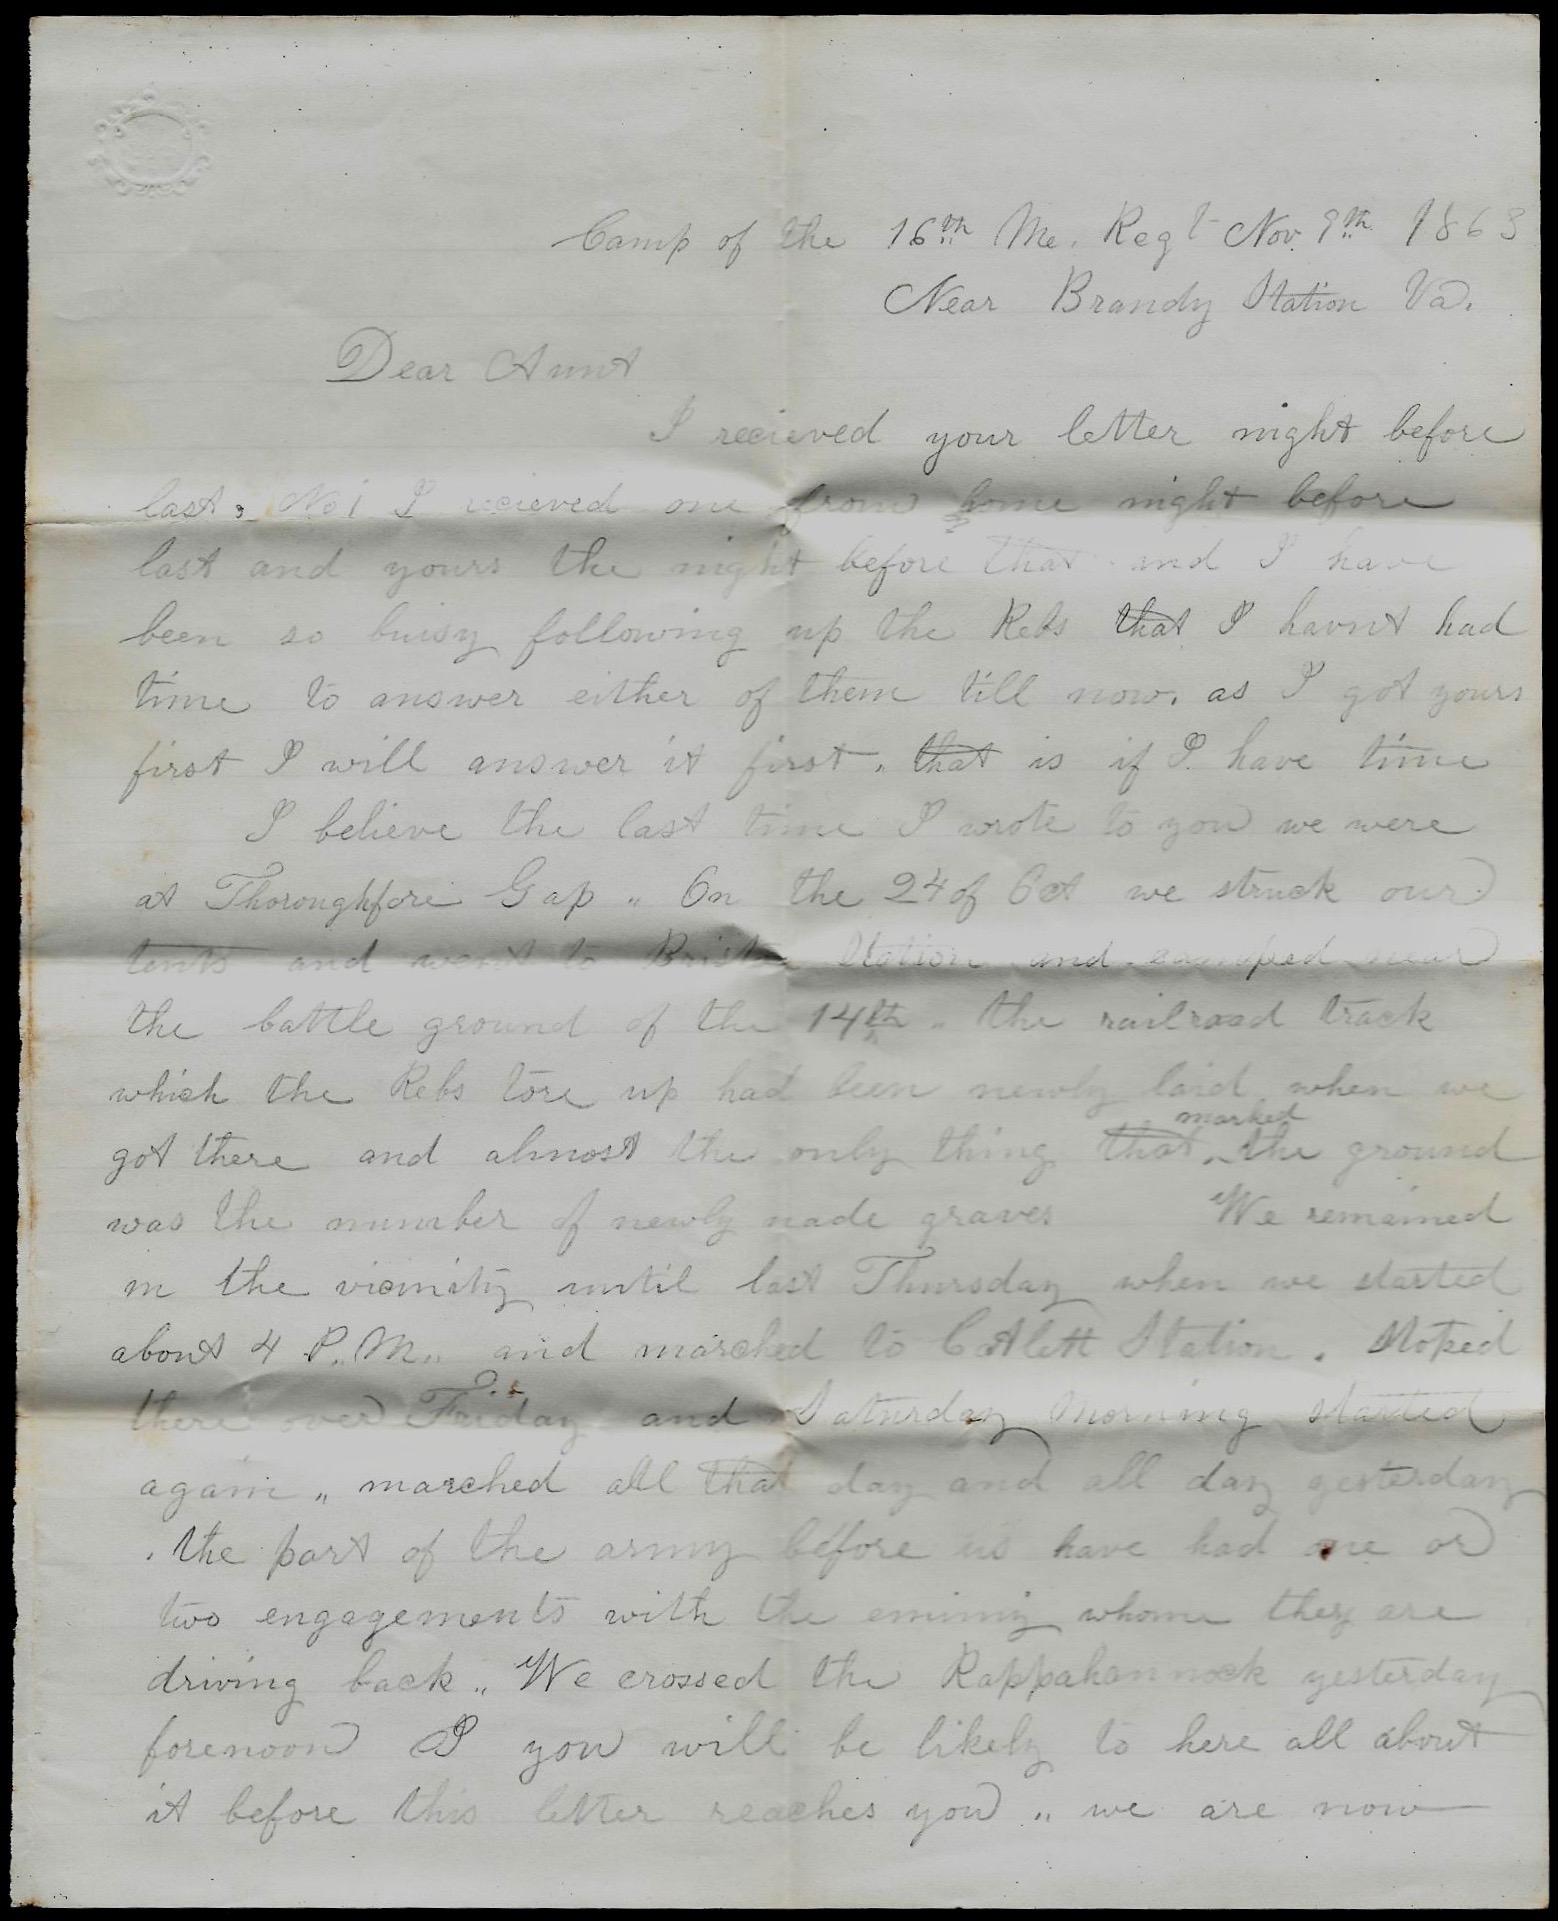 Camp of the 16th Me. Regt Nov. 9th 1863
Near Brandy Station Va.
Dear Aunt
I recieved your letter night before
last, No! I recieved one from home night before
last and yours the night before that and I have
been so buisy following up the Rebs that I havnt had
time to answer either of them till now. as I got yours
first I will answer it first. that is if I have time
I believe the last time I wrote to you we were
at Thoroughfare Gap " On the 24 of Oct we struck our
tents and went to Station and camped near
the battle ground of the 14th " the railroad track
which the Rebs tore up had been newly laid when we
got there and almost the only thing that marked the ground
was the number of newly made graves We remained
in the vicinity until last Thursday when we started
about 4 P.M. and marched to Catlett Station. Stoped
there over Friday and Saturday Morning started
again " marched all that day and all day yesterday
. the part of the army before us have had one or
two engagements with the enimy whome they are
driving back " We crossed the Rappahannock yesterday
forenoon I you will be likely to here all about
it before this letter reaches you " we are now